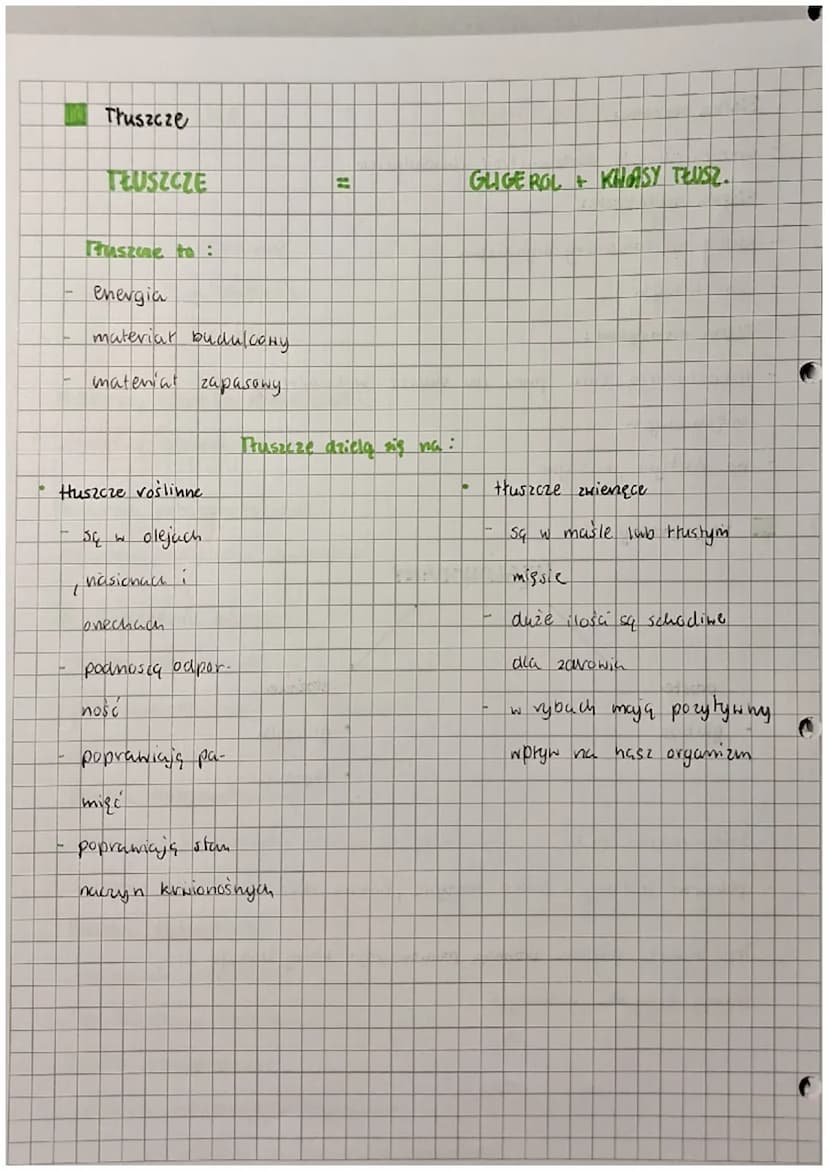 Tłuszcze
TŁUSZCZE = GLICEROL + KWASY TŁUSZ.
Tłuszcze to :
- energia
- materiał budulcowy
- materiał zapasowy
Tłuszcze dzielą się na :
• tłuszcze roślinne
- są w olejach
, nasionach i
orzechach
- podnoszą odpor-
ność
- poprawiają pa-
mięć
- poprawiają stan
naczyn krwionośnych
• tłuszcze zwierzęce
- są w maśle lub tłustym
mięsie
- duże ilości są szkodliwe
dla zdrowia
- w rybach mają pozytywny
wpływ na nasz organizm